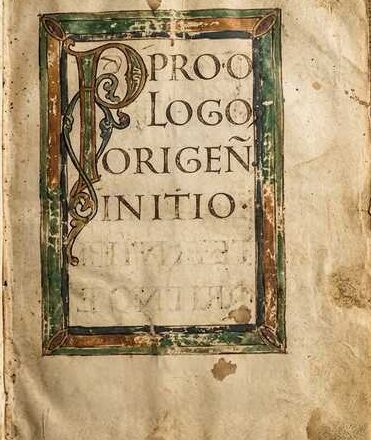 PPROO
LOGO
ORIGEÑ
INITIO·